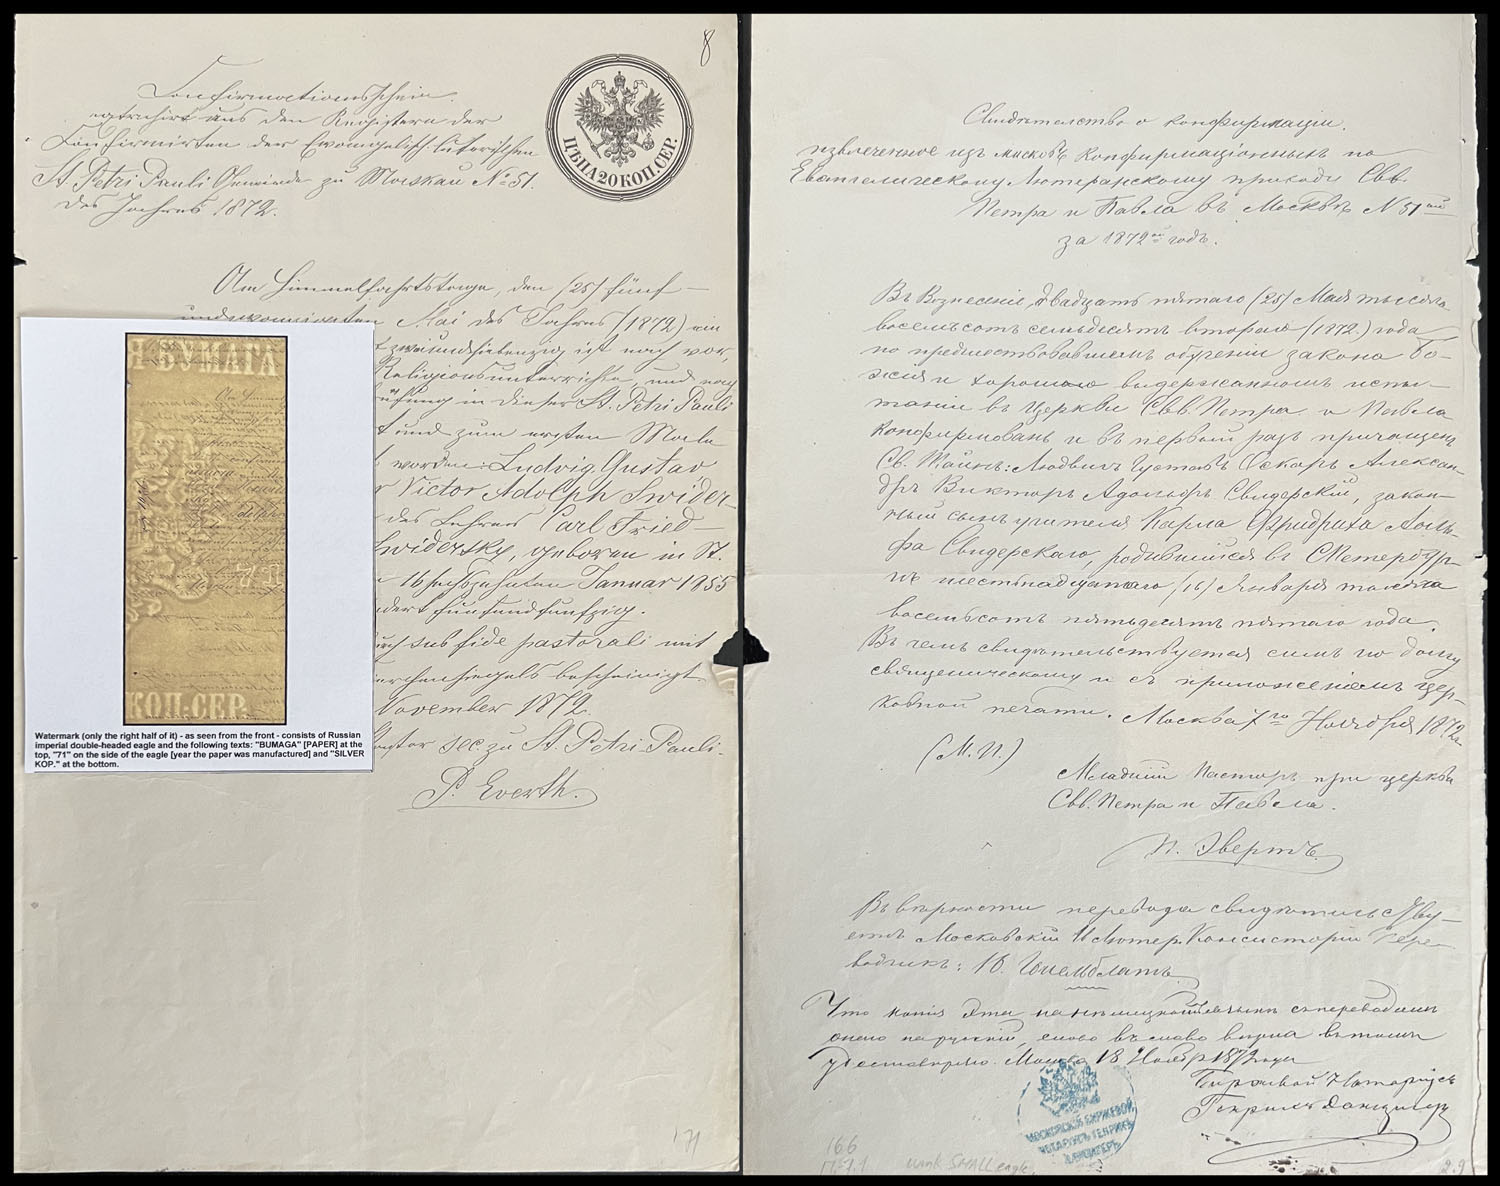 8
Confirmationsschein.
extrahirt aus den Registern der
Confirmirten der Evangelisch-Lutherischen
St. Petri Pauli Gemeinde zu Moskau № 51.
des Jahres 1872.
ЦѢНА 20 КОП. СЕР.
Am Himmelfahrtstage, den (25) fünf-
undzwanzigsten Mai des Jahres (1872) ein
t zweiundsiebenzig ist nach vor
Religionsunterrichte, und nach
üfung in dieser St. Petri Pauli
t und zum ersten Male
worden: Ludvig Gustav
r Victor Adolph Swider-
des Lehrers Carl Fried-
Swidersky, geboren in St.
16 sechszehnten Januar 1855
dert fünfundfunfzig.
urch sub fide pastorali mit
irchensiegels bescheinigt
November 1872.
Pastor sec. zu St. Petri-Pauli.
P. Everth.
БУМАГА
КОП-СЕР.
Watermark (only the right half of it) - as seen from the front - consists of Russian
imperial double-headed eagle and the following texts: "BUMAGA" [PAPER] at the
top, "71" on the side of the eagle [year the paper was manufactured] and "SILVER
KOP." at the bottom.
'71
Свидѣтельство о конфирмаціи.
извлеченное изъ списковъ конфирмаціонныхъ по
Евангелическому Лютеранскому приходу Свв.
Петра и Павла въ Москвѣ N 51ый
за 1872ой годъ.
Въ Вознесеніе, двадцать пятаго (25) Мая тысяча
восемьсотъ семьдесятъ втораго (1872.) года
по предшествовавшемъ обученіи закона Бо-
жія и хорошо выдержанномъ испы-
таніи въ Церкви Свв. Петра и Павла
конфирмованъ и въ первый разъ причащенъ
Св. Тайнъ: Людвигъ Густавъ Оскаръ Алексан-
дръ Викторъ Адольфъ Свидерскій, закон-
ный сынъ учителя Карла Фридриха Адоль-
фа Свидерскаго, родившійся въ С.Петербур-
гѣ шестнадцатаго (16) Января тысяча
восемьсотъ пятьдесятъ пятаго года.
Въ чемъ свидѣтельствуется симъ по долгу
священическому и съ приложеніемъ цер-
ковной печати. Москва 7го Ноября 1872 г.
(М. П.)
Младшій Пасторъ при церкви
Свв. Петра и Павла.
П. Эвертъ.
Въ вѣрности перевода свидѣтельству-
етъ Московскій Лютер. Консисторіи пере-
водчикъ:
Что копія эта на нѣмецкомъ языкѣ съ переводомъ
онаго на русскій, слово въ слово вѣрна въ томъ
удостовѣряю. Москва 18 Ноября 1872 года
Биржевой Нотаріусъ
Генрихъ Данцигеръ
МОСКОВСКІЙ БИРЖЕВОЙ
НОТАРІУСЪ ГЕНРИХЪ
ДАНЦИГЕРЪ
166
wmk SMALL eagle.
2.9